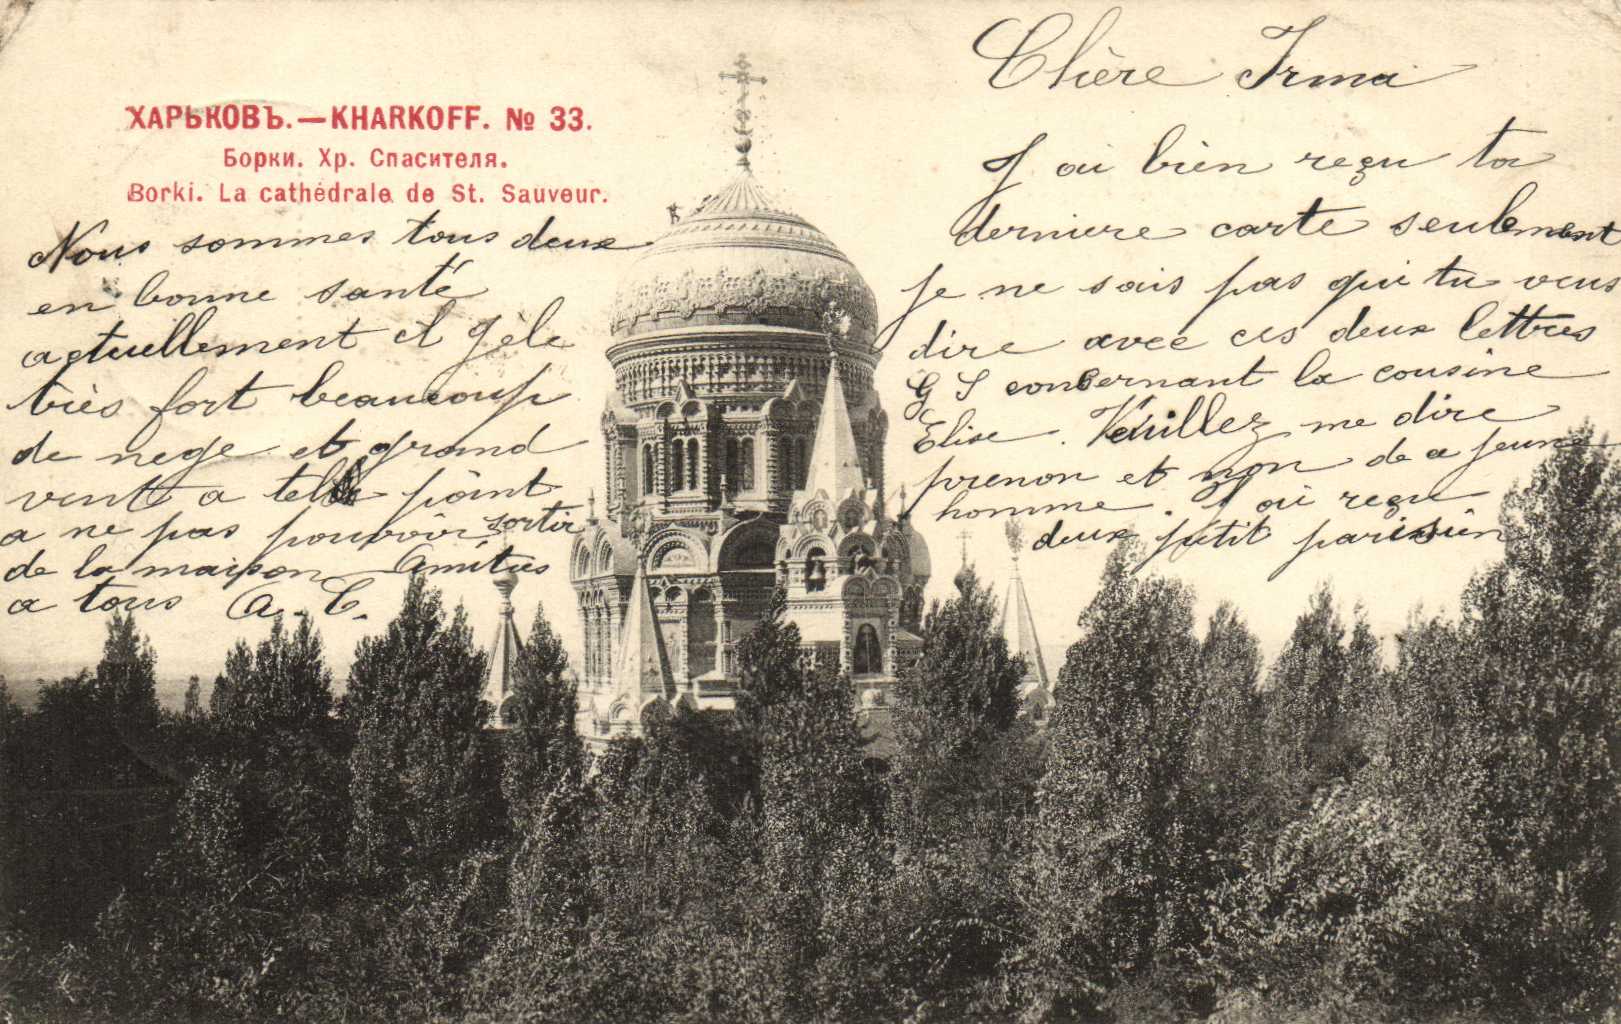 ХАРЬКОВЪ.—KHARKOFF. № 33.
Борки. Хр. Спасителя.
Borki. La cathédrale de St. Sauveur.
Chère Irma
J ai bien reçu ta
derniere carte seulement
je ne sais pas qui tu veus
dire avec ces deux lettres
G S concernant la cousine
Elise. Veuillez me dire
prenon et non de a jeune
homme. J ai reçu
deux petit parisien
Nous sommes tous deux
en bonne santé
actuellement il gèle
très fort beaucoup
de nege et grand
vent a tell point
a ne pas pouvoir sortir
de la maison Amities
a tous A. C.